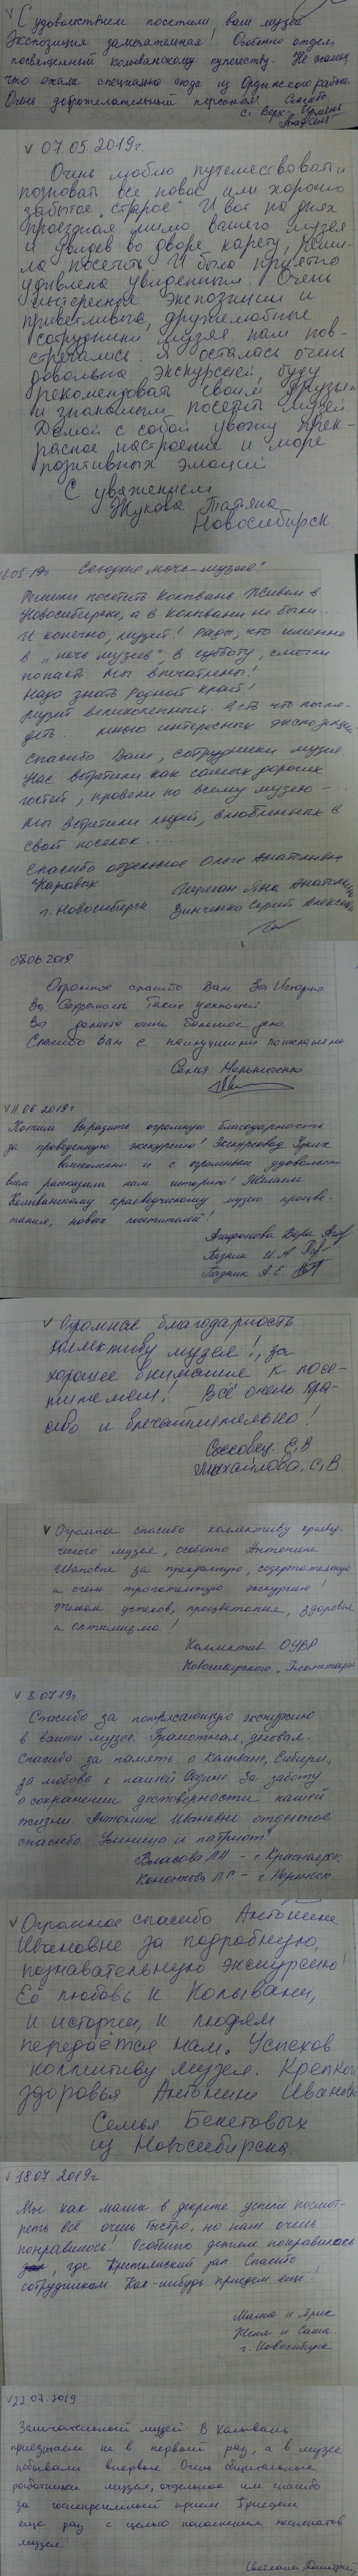 С удовольствием посетили ваш музей
Экспозиция замечательная! Особенно отдел,
посвященный колыванскому купечеству. Не жалеем,
что ехали специально сюда из Ордынского района.
Очень доброжелательный персонал! Спасибо
с. Верх-
07.05.2019г.
Очень люблю путешествовать и
познавать все новое или хорошо
забытое "старое". И вот на днях
проезжая мимо вашего музея
и увидев во дворе карету, реши-
ла посетить. И была приятно
удивлена увиденным. Очень
интересные экспозиции и
приветливые, дружелюбные
сотрудники музея нам пов-
стречались. Я осталась очень
довольна экскурсией, буду
рекомендовать своим друзьям
и знакомым посетить музей
Домой с собой увожу прек-
расное настроение и море
позитивных эмоций
С уважением
Жукова Татьяна
Новосибирск
18.05-19г Сегодня "ночь-музеев"
Решили посетить Колывань. Живем в
Новосибирске, а в Колывани не были...
И конечно, музей! Рады, что именно
в "ночь музеев", в субботу, смогли
попасть. Мы впечатлены!
Надо знать Родной край!
Музей великолепный. Есть что погля-
деть. Много интересных экспозиций
Спасибо Вам, сотрудники музея
Нас встретили как самых дорогих
гостей, провели по всему музею-
Мы встретили людей, влюбленных в
свой поселок...
Спасибо отдельное Ольге Анатольевне
г. Новосибирск Зинченко Сергей
08.06.2019
Огромное спасибо Вам За Историю
За Сохранность Таких ценностей
Вы делаете очень большое дело
Спасибо Вам с наилучшими пожеланиями
Семья Мельниченко
11.06 2019г
Хотим выразить огромную благодарность
за проведенную экскурсию! Экскурсовод
великолепно и с огромным удовольст
вием рассказала нам историю! Желаем
Колыванскому краеведческому музею процве-
тания, новых посетителей!
Агафонова Вера
Пазник И.А
Пазник А.С.
Огромная благодарность
коллективу музея!, за
хорошее внимание к посе-
тителям! Всё очень кра-
сиво и впечатлительно!
Сосковец Е,В
Михайлова, С,В
Огромное спасибо коллективу краевед-
ческого музея, особенно Антонине
Ивановне за прекрасную, содержательную
и очень трогательную экскурсию!
Желаем успехов, процветания, здоровья
и оптимизма!
Коллектив
Новосибирского
8.07 19г
Спасибо за потрясающую экскурсию
в вашем музее. Грамотная, деловая.
Спасибо за память о Колыване, Сибири,
за любовь к нашей Родине. За заботу
о сохранении достоверности нашей
жизни. Антонине Ивановне отдельное
спасибо. Умница и патриот!
Власова Л.П - г. Красноярск.
Огромное спасибо Антонине
Ивановне за подробную,
познавательную экскурсию!
Её любовь к Колывани,
к истории, к людям
передаётся нам. Успехов
коллективу музея. Крепкого
здоровья Антонине Ивановне
Семья Бекетовых
из Новосибирска.
18.07.2019г
Мы как мамы в декрете успели посмот-
реть всё очень быстро, но нам очень
понравилось! Особенно детям понравилось
, где Крестьянский зал. Спасибо
сотрудникам. Как-нибудь приедем еще!
Маша и Ярик
Женя и Саша
г. Новосибирск
22.07.2019
Замечательный музей. В Колывань
приезжаем не в первый раз, а в музее
побывали впервые. Очень обаятельные
работники музея, отдельное им спасибо
за гостеприимный прием. Приедем
еще раз с целью пополнения экспонатов
музея.
Светлана, Дмитрий